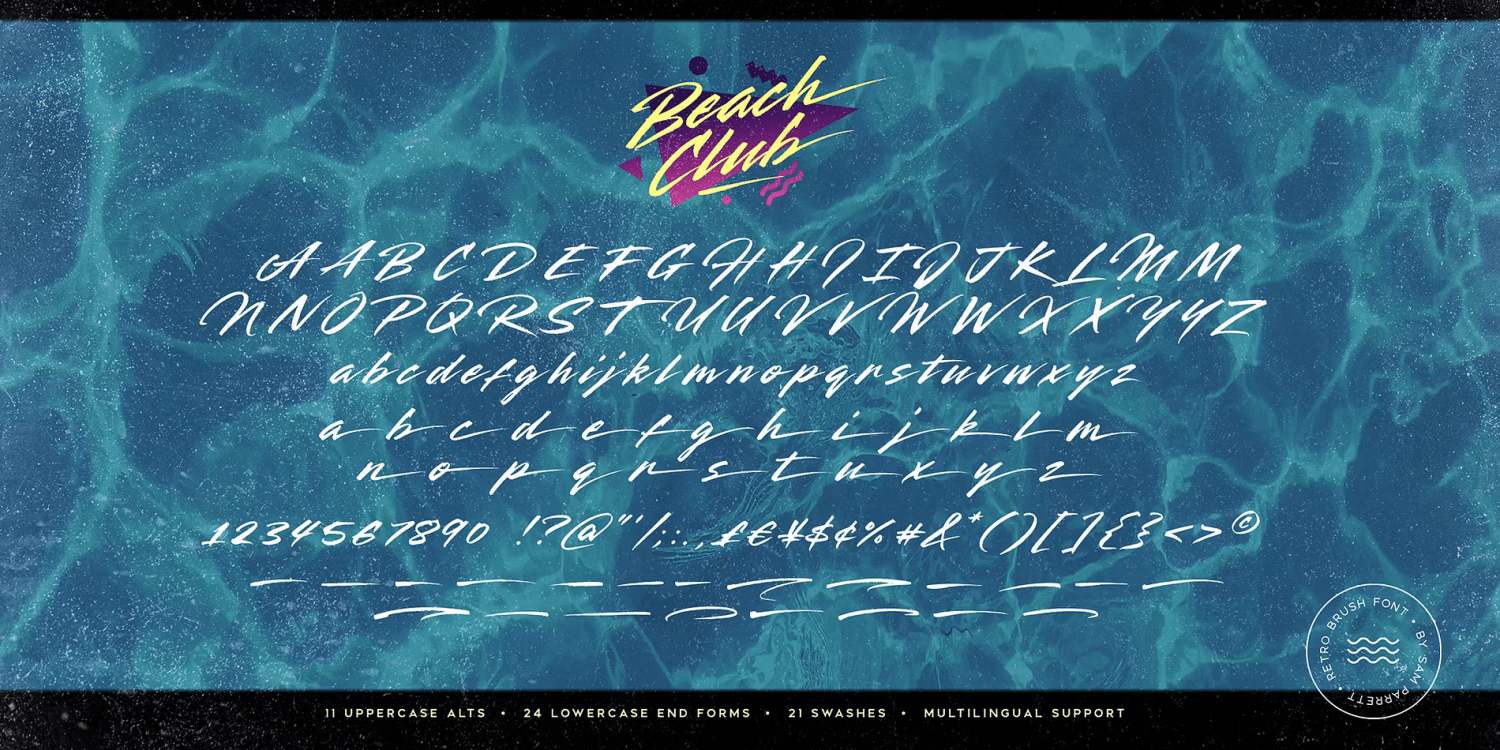 Beach
Club
AABCDEFGHHIIJJKLMM
NNOPQRSTUUVVWWXXYYZ
abcdefghijklmnopqrstuvwxyz
abcdefghijklm
nopqrstuxyz
1234567890 !?@"'/;:.,£€¥$¢%#&*()[]{}<>©
RETRO BRUSH FONT • BY SAM PARRETT •
11 UPPERCASE ALTS • 24 LOWERCASE END FORMS • 21 SWASHES • MULTILINGUAL SUPPORT